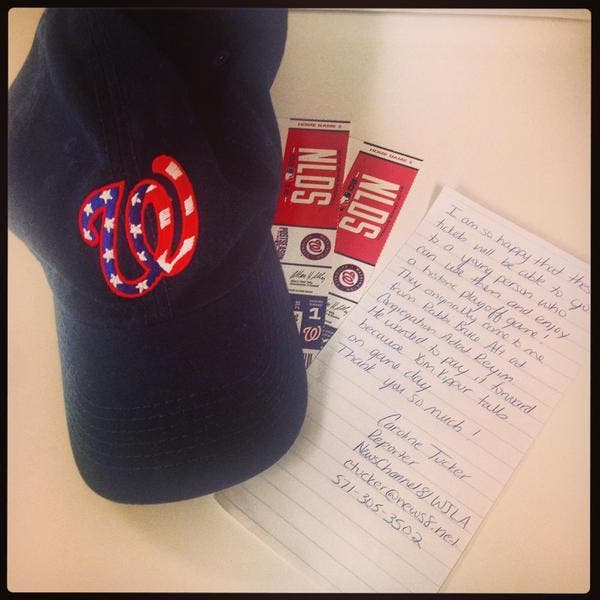 W
HOME GAME 1
NLDS
HOME GAME 1
NLDS
POSTSEASON
1
W
I am so happy that these
tickets will be able to go
to a young person who
can use them and enjoy
a historic playoff game!
They originally came to me
from Rabbi Bruce Aft at
Congregation Adat Reyim.
He wanted to pay it forward
because Yom Kippur falls
on game day.
Thank you so much!
Caroline Tucker
Reporter
NewsChannel8/WJLA
ctucker@news8.net
571-305-3502